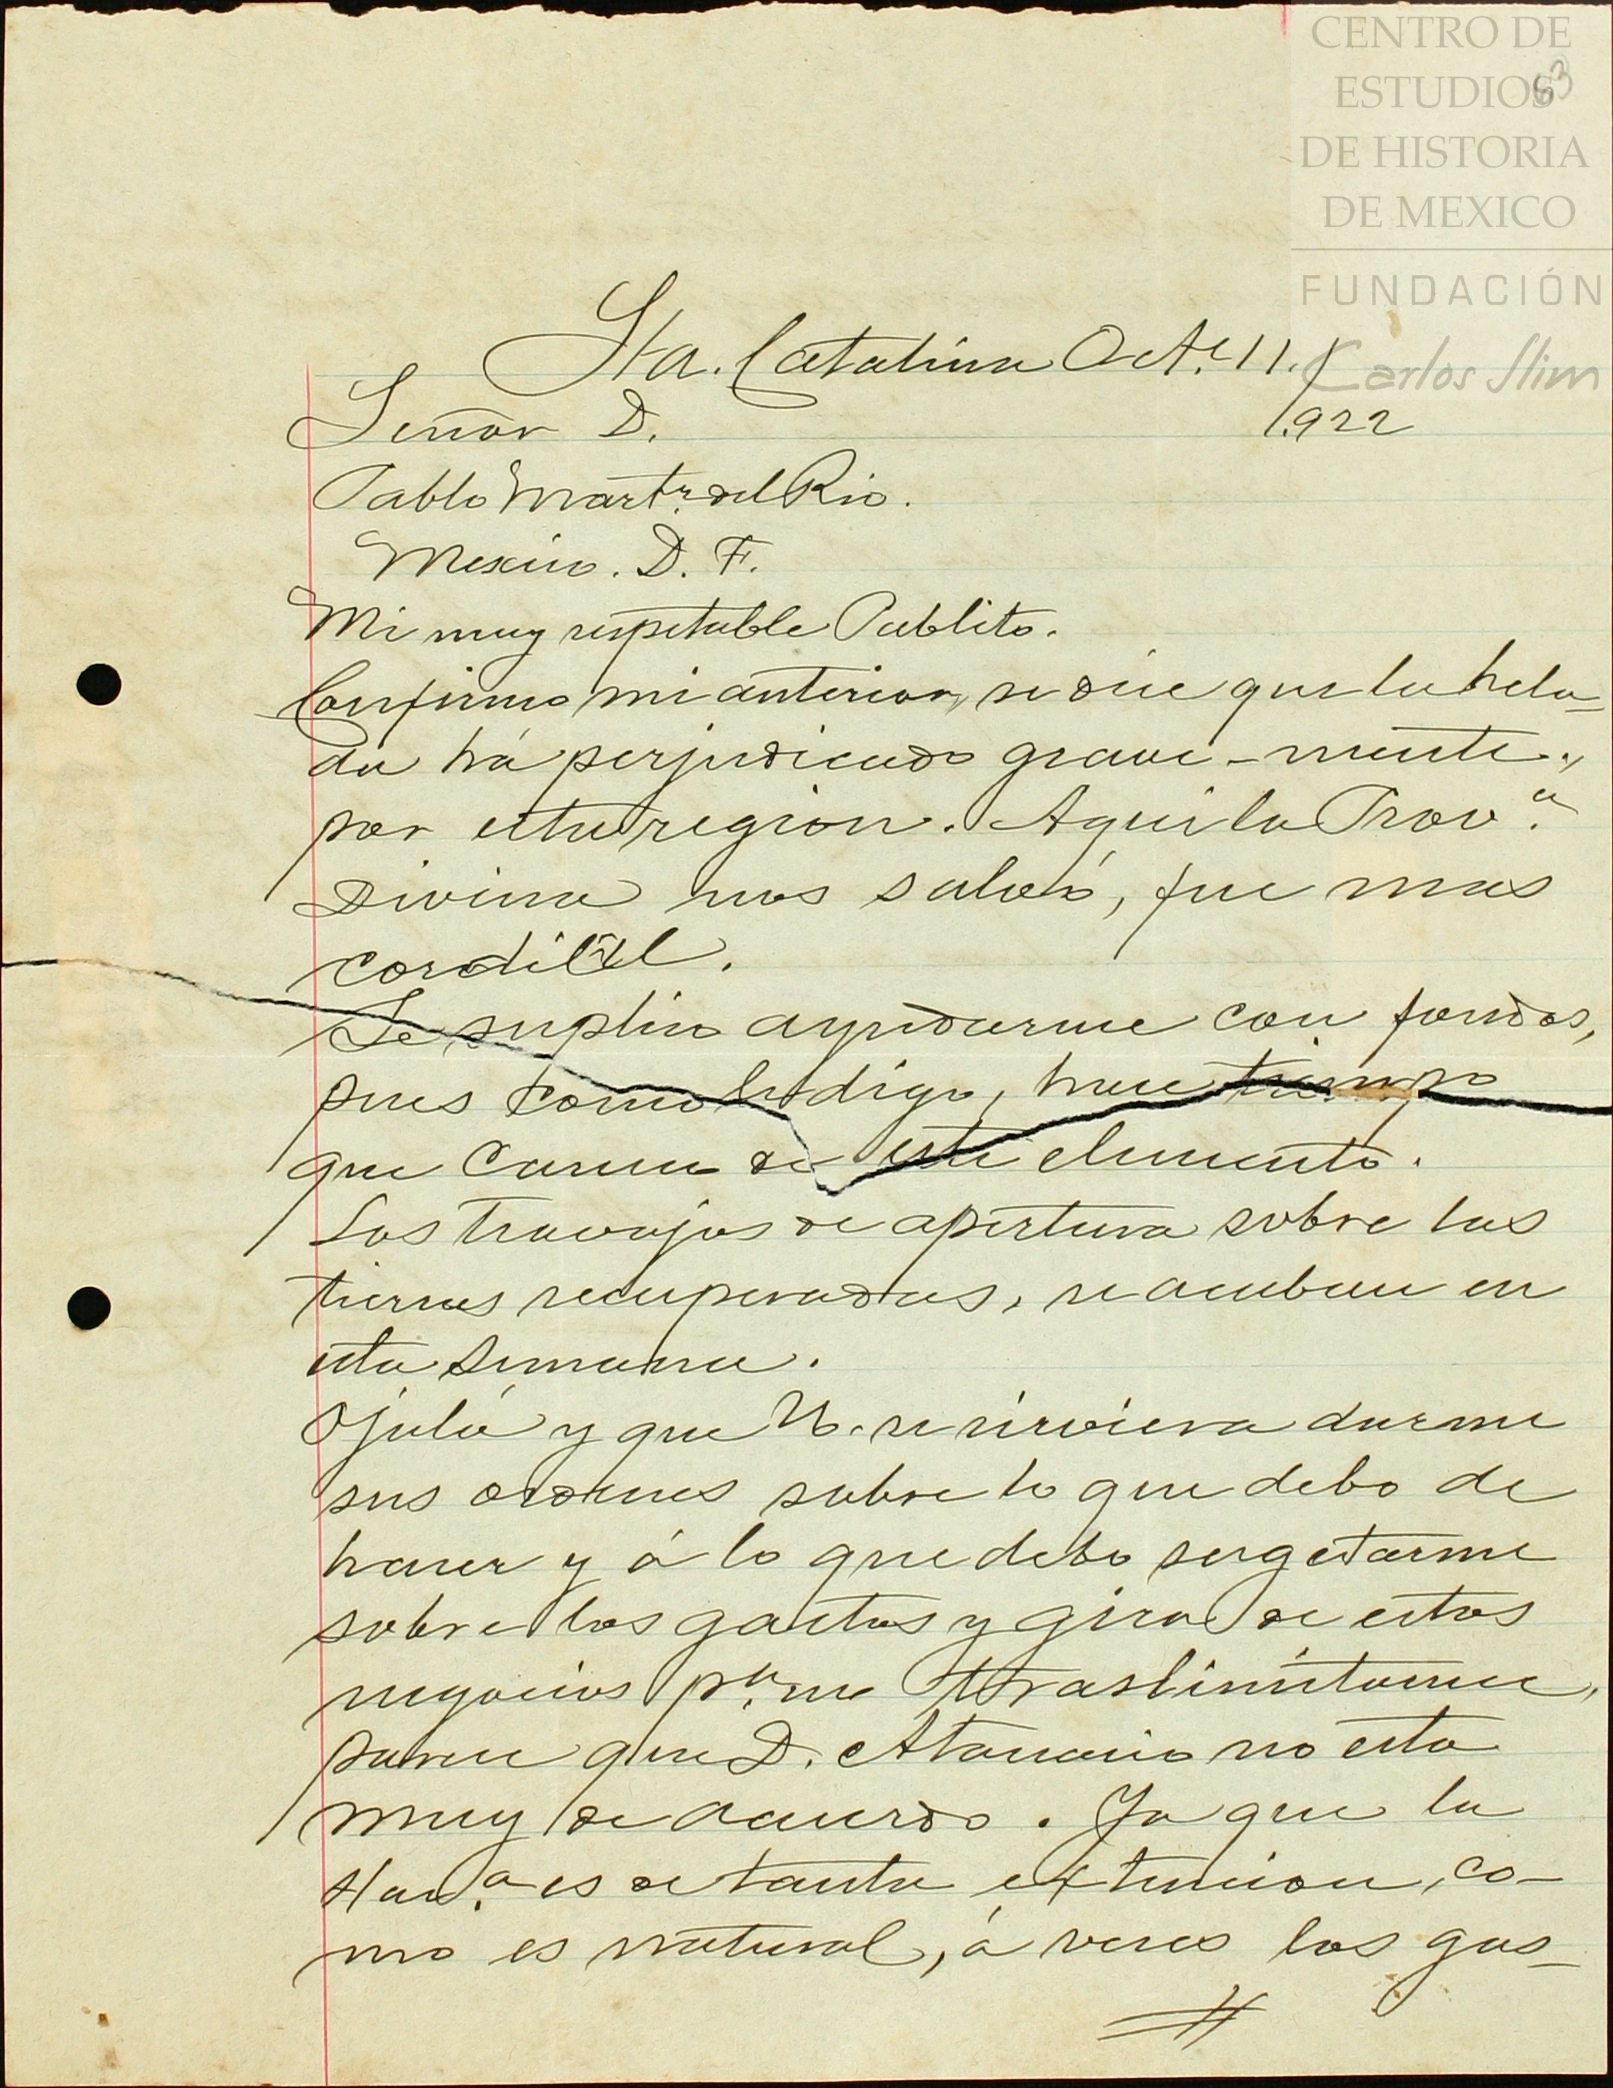 CENTRO DE
ESTUDIOS
DE HISTORIA
DE MEXICO
FUNDACIÓN
Carlos Slim
63
Sta. Catalina Oct.e 11./
1.922
Señor D.
Pablo Mart.z del Rio.
Mexico. D. F.
Mi muy respetable Pablito.
Confirmo mi anterior, se dice que la hela=
da há perjudicado grave-mente.,
por esta region. Aqui la Prov.a
Divina nos salvó, fue mas
cordial.
Le suplico ayudarme con fondos,
pues como le digo, hace tiempo
que carese de este elemento.
Los travajos de apertura sobre las
tierras recuperadas, se acaban en
esta semana.
Ojalá y que U. se sirviera darme
sus ordenes sobre lo que debo de
hacer y á lo que debo sugetarme
sobre los gastos y giro de estos
negocios p.a no traslimitarme,
parece que D. Atanacio no esta
muy de acuerdo. Ya que la
Hac.a es de tanta extencion, co-
mo es natural, á veces los gas=